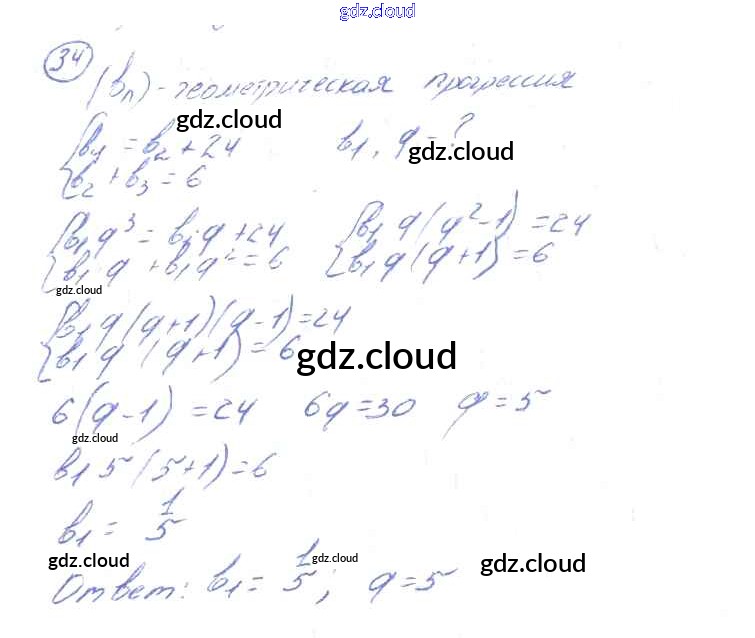 gdz.cloud
34
(bn) - геометрическая прогрессия
gdz.cloud
{b4 = b2 + 24    b1, q = ?
gdz.cloud
{b2 + b3 = 6
{b1 q³ = b1 q + 24    {b1 q (q² - 1) = 24
{b1 q + b1 q² = 6    {b1 q (q + 1) = 6
gdz.cloud
{b1 q (q + 1)(q - 1) = 24
{b1 q (q + 1) = 6
gdz.cloud
6(q - 1) = 24    6q = 30    q = 5
gdz.cloud
b1 5 (5 + 1) = 6
b1 = 1/5
gdz.cloud gdz.cloud gdz.cloud
Ответ: b1 = 1/5; q = 5